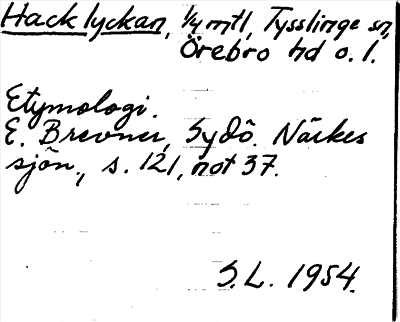 Hacklyckan, 1/4 mtl, Tysslinge sn,
Örebro hd o. l.
Etymologi.
E. Brevner, Sydö. Närkes
sjön., s. 121, not 37.
S.L. 1954.